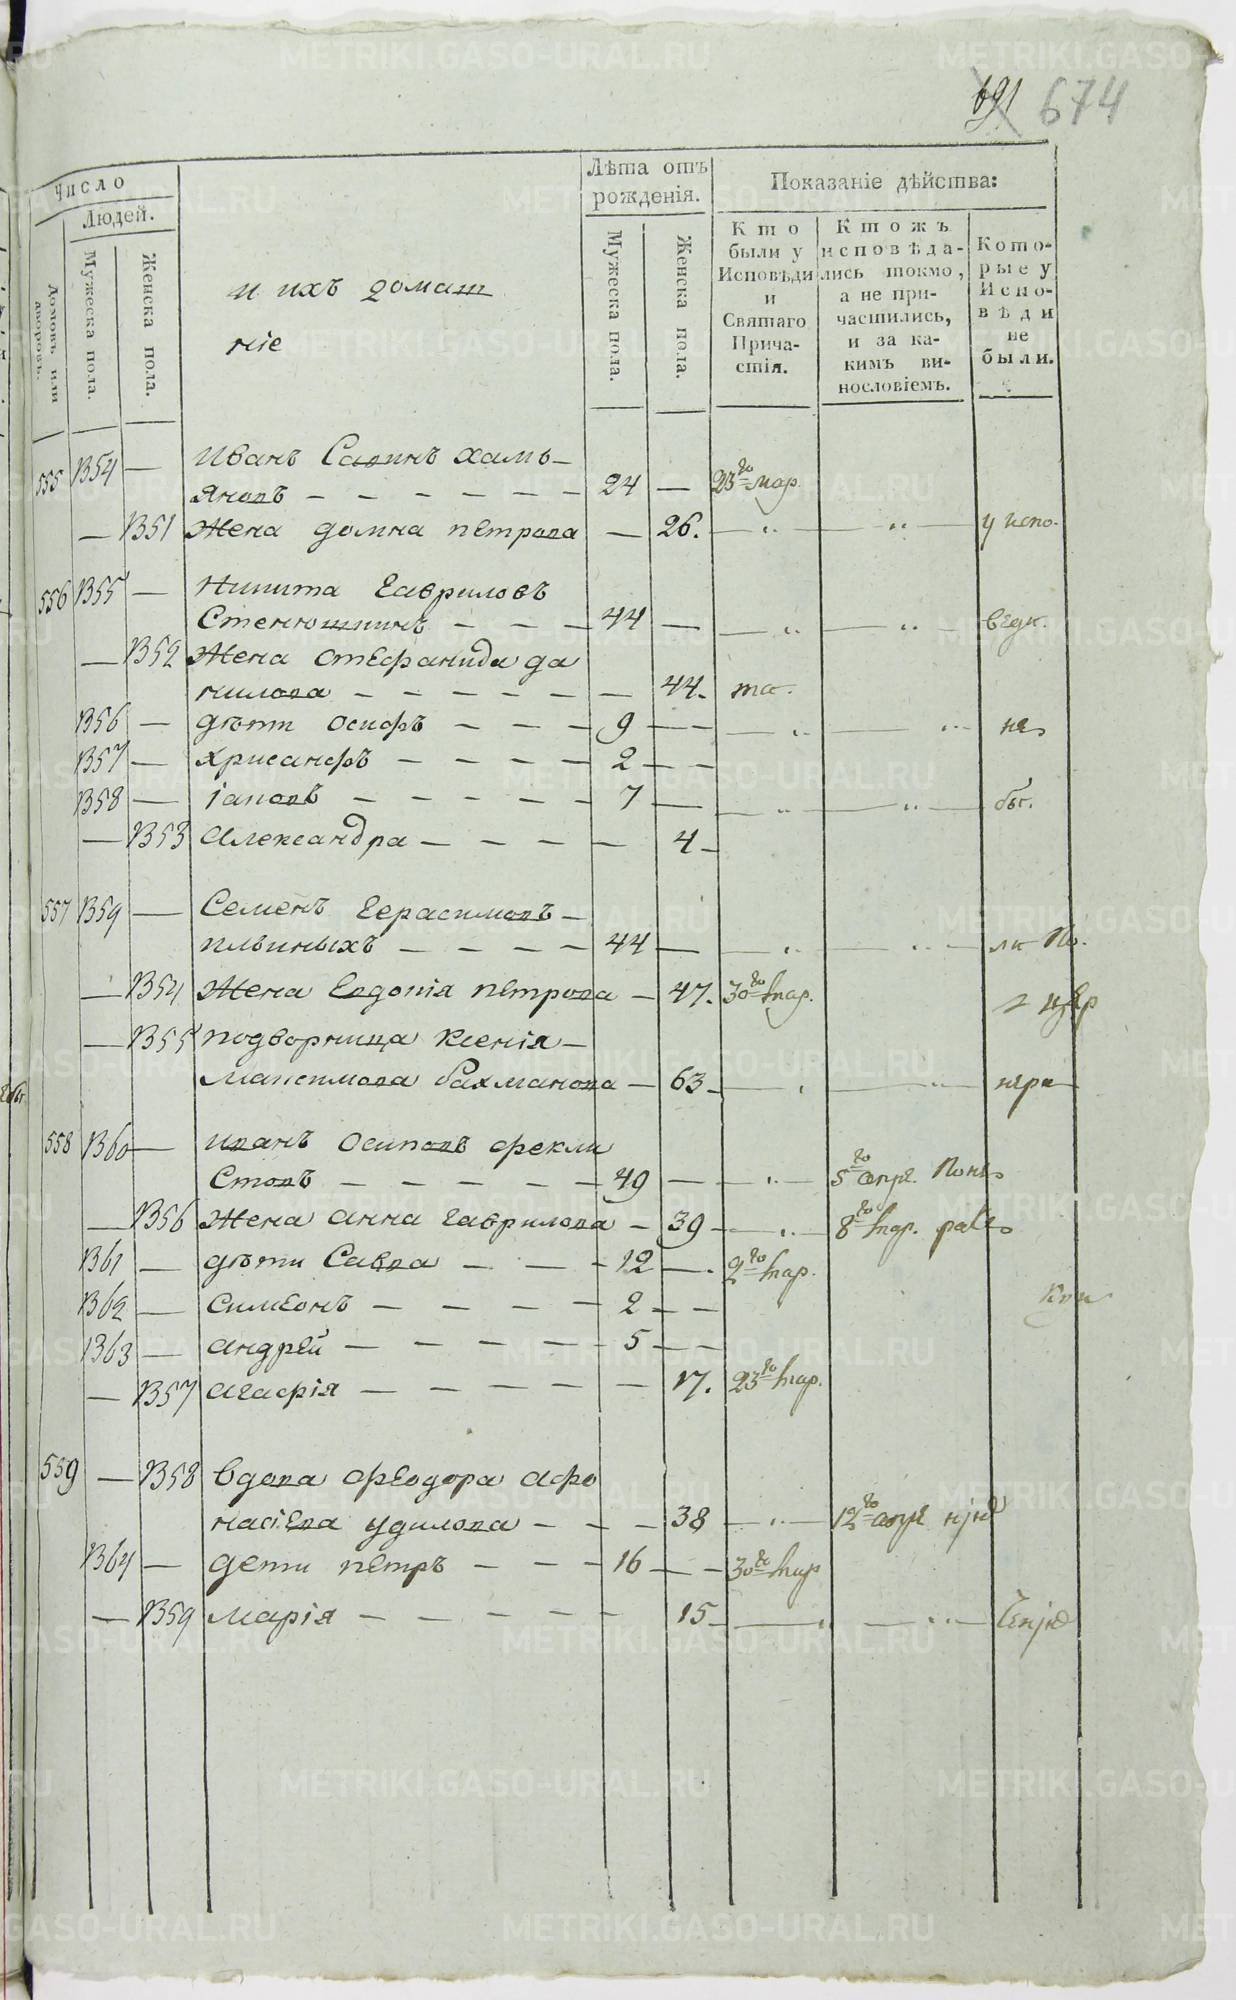 691 674
Число
Людей.
Домовъ или дворовъ.
Мужеска пола.
Женска пола.
и ихъ домаш
ніе
Лѣта отъ
рожденія.
Мужеска пола.
Женска пола.
Показаніе дѣйства:
Кто
были у
Исповѣди
и
Святаго
Прича-
стія.
Ктожъ
исповѣда-
лись токмо,
а не при-
частились,
и за ка-
кимъ ви-
нословіемъ.
Кото-
рые у
Испо-
вѣди
не
были.
555 1354 — Иванъ Савинъ Халь-
яновъ — 24 — 23го мар.
— 1351 Жена домна петрова — 26. у испо-
556 1355 — Никита Гавриловъ
Стенюшкинъ — 44 — веди.
— 1352 Жена Стефанида да
нилова — 44.
1356 — дѣти Осифъ — 9 — не
1357 — Хрисанфъ — 2 —
1358 — Іаковъ — 7 — бы.
— 1353 Александра — 4
557 1359 — Семенъ Герасимовъ —
ильиныхъ — 44 — ли по.
— 1354 Жена Евдокія петрова — 47. 30го мар.
— 1355 подворница Ксенія —
Максимова бахманова — 63
558 1360 — иванъ Осиповъ фекли
стовъ — 49 — 5го апре.
— 1356 Жена анна гаврилова — 39 — 8го мар.
1361 — дѣти Савва — 12 — 2го мар.
1362 — Симеонъ — 2 —
1363 — андрей — 5 —
— 1357 агафія — 17. 23го мар.
559 — 1358 вдова феодора афо
насіева удилова — 38 — 12го апре
1364 — дети петръ — 16 — 30го мар
— 1359 марія — 15
METRIKI.GASO-URAL.RU